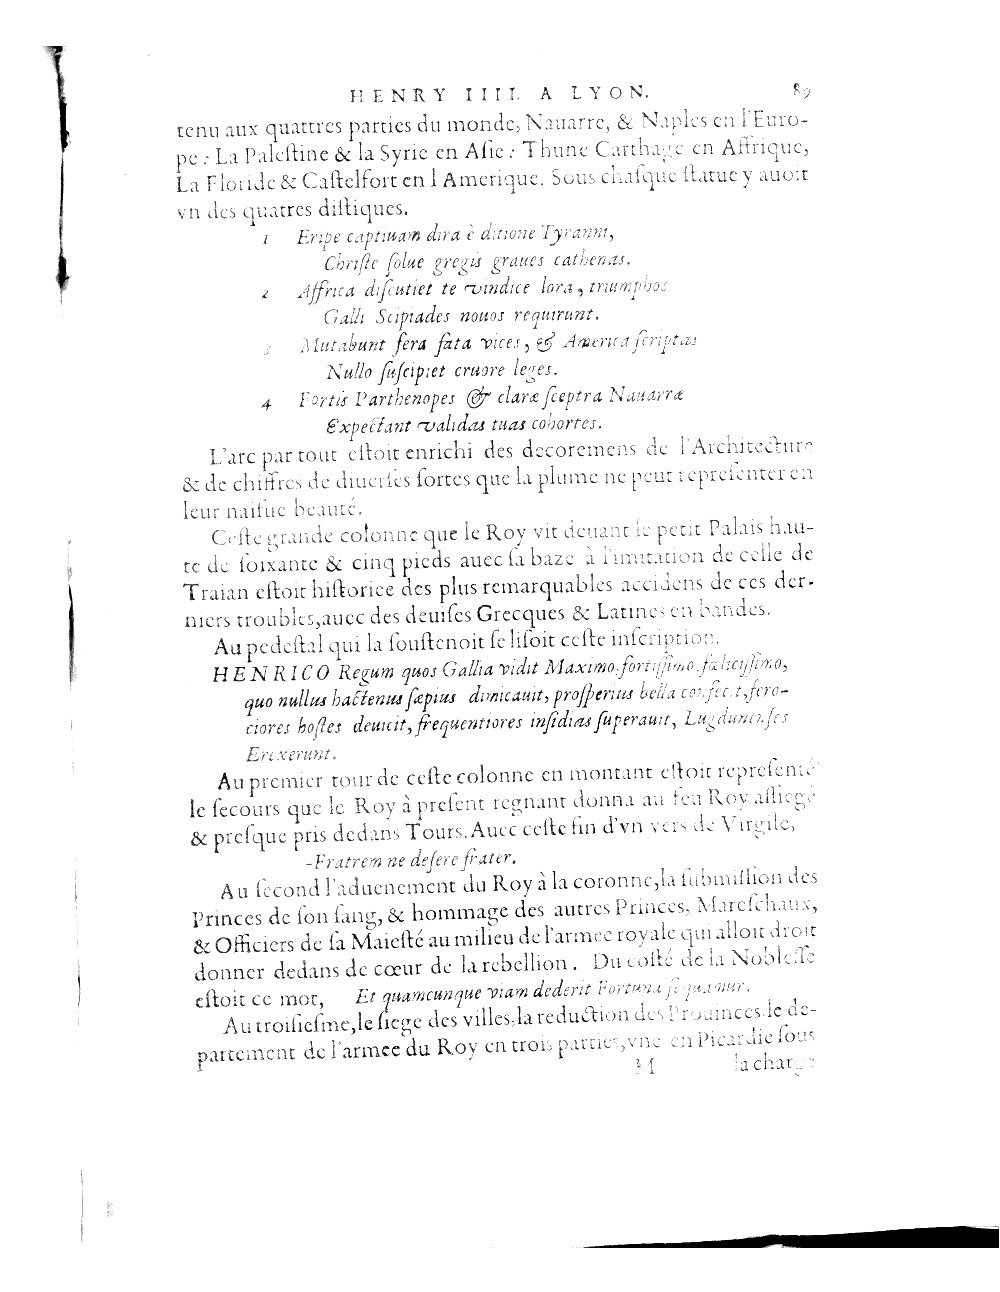 HENRY IIII. A LYON. 89
tenu aux quattres parties du monde, Nauarre, & Naples en l'Euro-
pe : La Paleſtine & la Syrie en Aſie : Thune Carthage en Affrique,
La Floride & Caſtelfort en l Amerique. Sous chaſque ſtatue y auoit
vn des quatres diſtiques.
1 Eripe captiuam dira è ditione Tyranni,
Chriſte ſolue gregis graues cathenas.
2 Affrica diſcutiet te vindice lora, triumphos
Galli Scipiades nouos requirunt.
3 Mutabunt fera fata vices, & America ſcriptas
Nullo ſuſcipiet cruore leges.
4 Fortis Parthenopes & claræ ſceptra Nauarræ
Expectant validas tuas cohortes.
L'arc par tout eſtoit enrichi des decoremens de l'Architecture
& de chiffres de diuerſes ſortes que la plume ne peut repreſenter en
leur naifue beauté.
Ceſte grande colonne que le Roy vit deuant le petit Palais hau-
te de ſoixante & cinq pieds auec ſa baze à l'imitation de celle de
Traian eſtoit hiſtoriee des plus remarquables accidens de ces der-
niers troubles, auec des deuiſes Grecques & Latines en bandes.
Au pedeſtal qui la ſouſtenoit ſe liſoit ceſte inſcription.
HENRICO Regum quos Gallia vidit Maximo, fortiſſimo, fæliciſſimo,
quo nullus hactenus ſæpius dimicauit, proſperius bella confecit, fero-
ciores hoſtes deuicit, frequentiores inſidias ſuperauit, Lugdunenſes
Erexerunt.
Au premier tour de ceſte colonne en montant eſtoit repreſenté
le ſecours que le Roy à preſent regnant donna au feu Roy aſſiegé
& preſque pris dedans Tours. Auec ceſte fin d'vn vers de Virgile,
-Fratrem ne deſere frater.
Au ſecond l'aduenement du Roy à la coronne, la ſubmiſſion des
Princes de ſon ſang, & hommage des autres Princes, Mareſchaux,
& Officiers de ſa Maieſté au milieu de l'armee royale qui alloit droit
donner dedans de cœur de la rebellion. Du coſté de la Nobleſſe
eſtoit ce mot, Et quamcunque viam dederit Fortuna ſequamur.
Au troiſieſme, le ſiege des villes, la reduction des Prouinces, le de-
partement de l'armee du Roy en trois parties, vne en Picardie ſous
M la charge